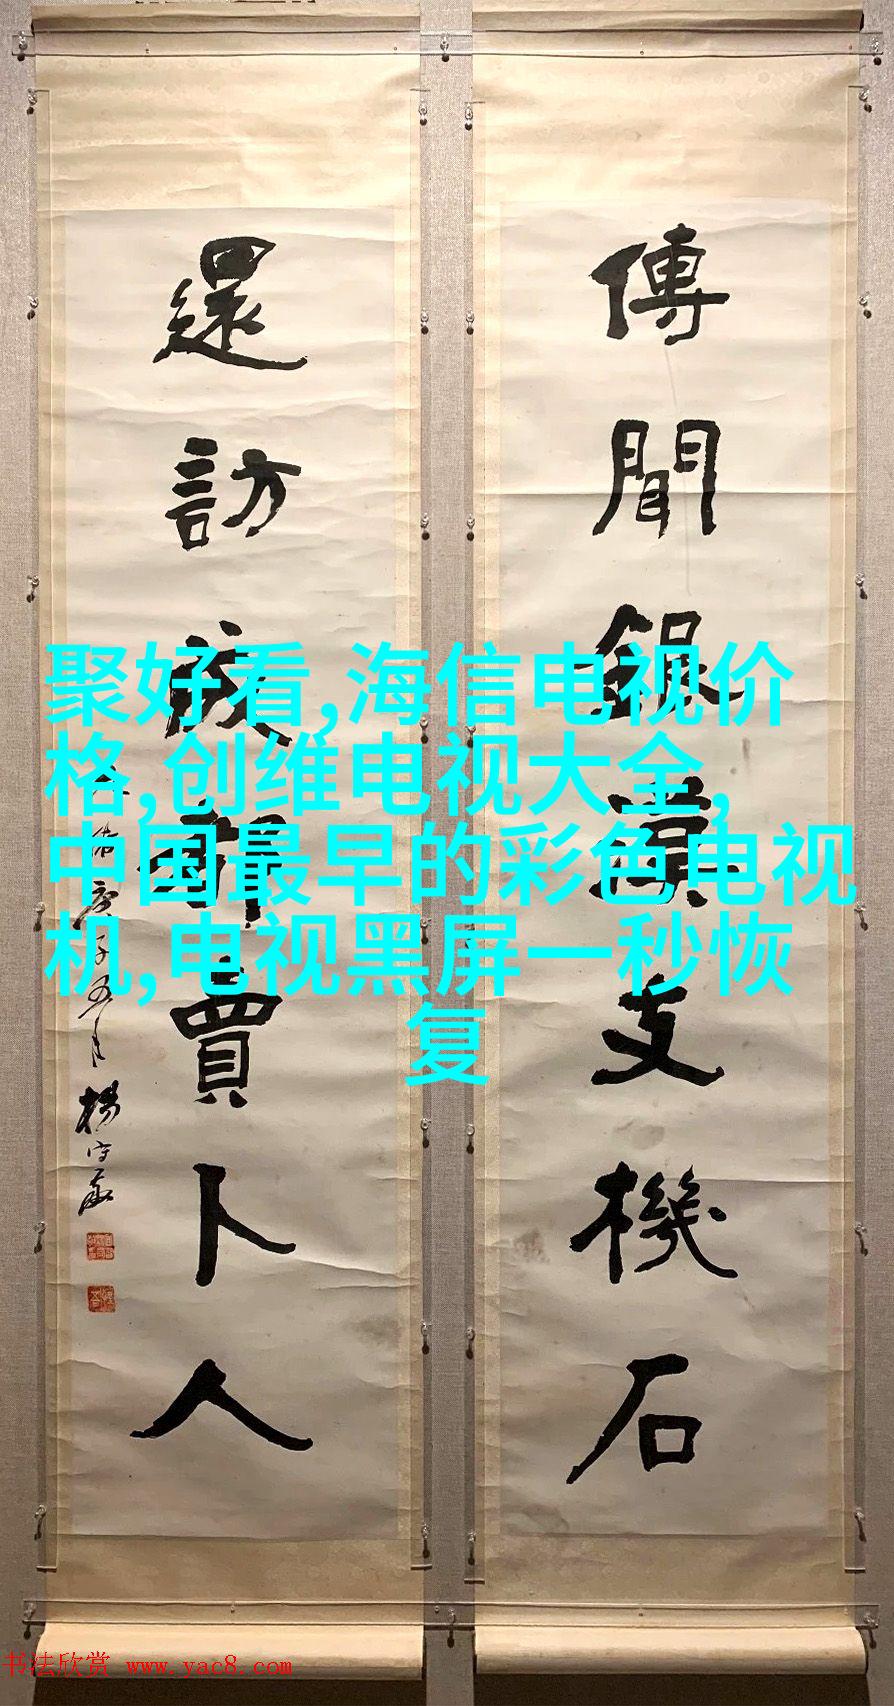 傳聞銀漢支機石
還訪成都賣卜人
楊守敬
聚好看,海信电视价
格,创维电视大全,
中国最早的彩色电视
机,电视黑屏一秒恢
复
书法欣赏 www.yac8.com